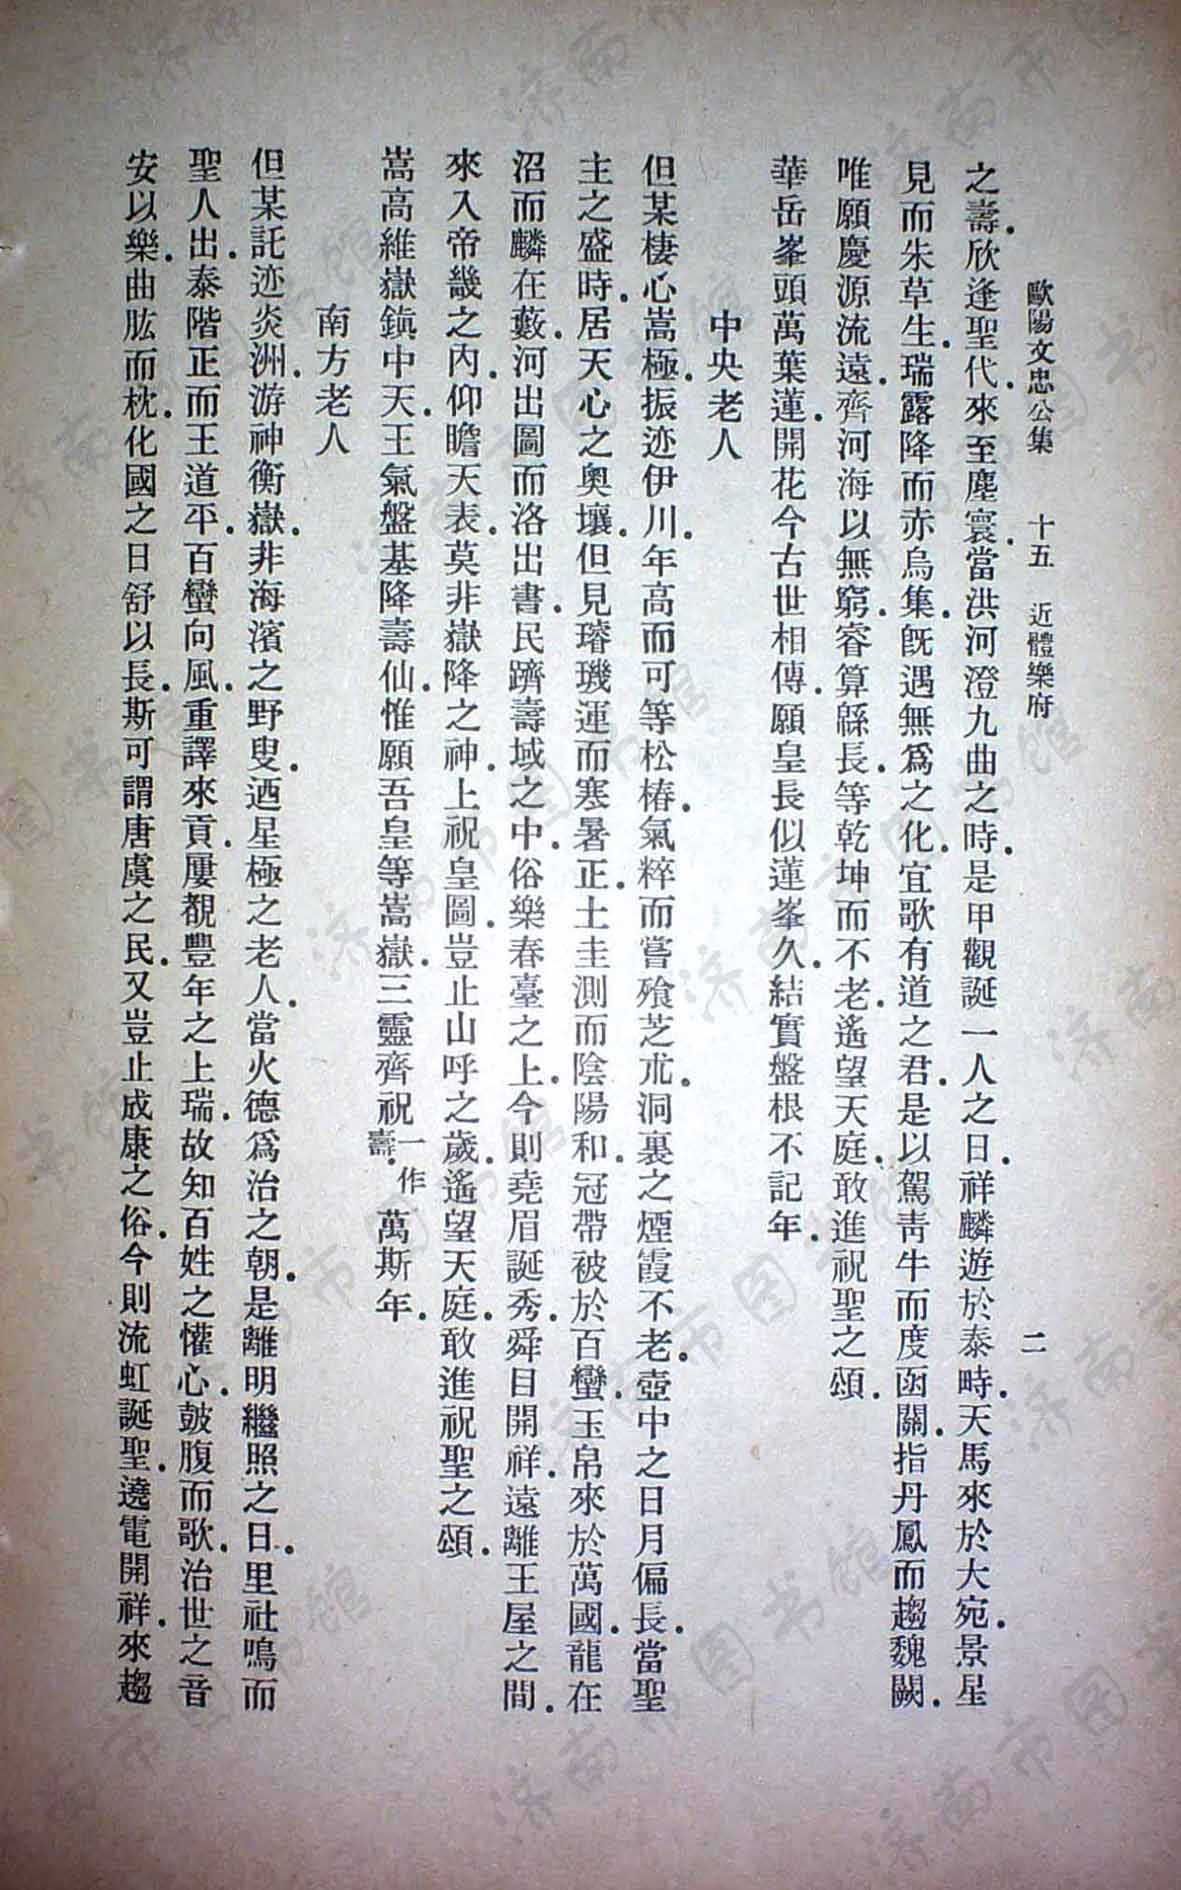 歐陽文忠公集　十五　近體樂府　二
之壽.欣逢聖代.來至塵寰.當洪河澄九曲之時.是甲觀誕一人之日.祥麟遊於泰畤.天馬來於大宛.景星
見而朱草生.瑞露降而赤烏集.旣遇無爲之化.宜歌有道之君.是以駕靑牛而度函關.指丹鳳而趨魏闕.
唯願慶源流遠.齊河海以無窮.睿算緜長.等乾坤而不老.遙望天庭.敢進祝聖之頌.
華岳峯頭萬葉蓮.開花今古世相傳.願皇長似蓮峯久.結實盤根不記年.
中央老人
但某棲心嵩極.振迹伊川.年高而可等松椿.氣粹而嘗飱芝朮.洞裏之煙霞不老.壺中之日月偏長.當聖
主之盛時.居天心之奧壤.但見璿璣運而寒暑正.土圭測而陰陽和.冠帶被於百蠻.玉帛來於萬國.龍在
沼而麟在藪.河出圖而洛出書.民躋壽域之中.俗樂春臺之上.今則堯眉誕秀.舜目開祥.遠離王屋之間.
來入帝畿之內.仰瞻天表.莫非嶽降之神.上祝皇圖.豈止山呼之歲.遙望天庭.敢進祝聖之頌.
嵩高維嶽鎭中天.王氣盤基降壽仙.惟願吾皇等嵩嶽.三靈齊祝一作壽.萬斯年.
南方老人
但某託迹炎洲.游神衡嶽.非海濱之野叟.迺星極之老人.當火德爲治之朝.是離明繼照之日.里社鳴而
聖人出.泰階正而王道平.百蠻向風.重譯來貢.屢覩豐年之上瑞.故知百姓之懽心.皷腹而歌.治世之音
安以樂.曲肱而枕.化國之日舒以長.斯可謂唐虞之民.又豈止成康之俗.今則流虹誕聖.遶電開祥.來趨